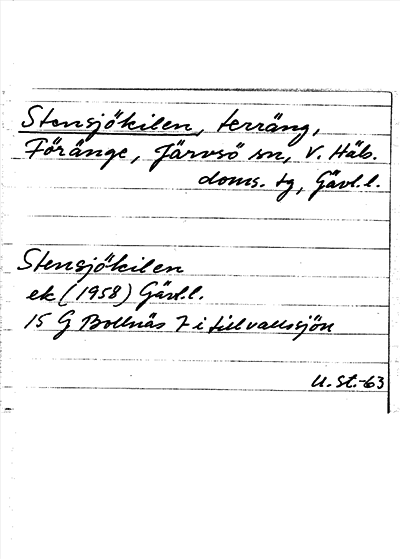 Stensjökilen, terräng,
Föränge, Järvsö sn, V. Häls.
doms. tg, Gävl.l.
Stensjökilen
ek (1958) Gävl.l.
15 G Bollnäs 7 i
U.St.-63